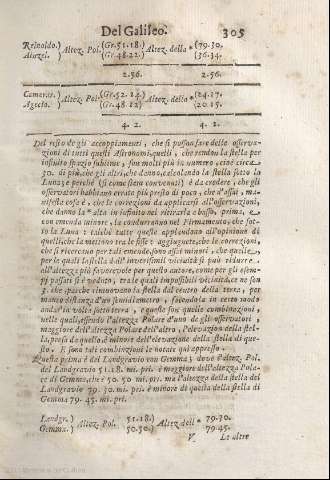 Del Galileo. 305
Reinoldo.) Altez. Pol. (Gr. 51. 18.) Altez. della * (79. 30.
Ainzel.) (Gr. 48. 22.) (36. 34.
2. 56. 2. 56.
Camerar.) Altez. Pol. (Gr. 52. 24.) Altez. della * (24. 17.
Agecio.) (Gr. 48. 22) (20. 15.
4. 2. 4. 2.
Del resto de gli accoppiamenti, che si posson fare delle osserva-
zioni di tutti questi Astronomi, quelli, che rendon la stella per
infinito spazio sublime, son molti più in numero, cioè circa
30. di più, che gli altri, che danno, calcolando la stella sotto la
Luna; e perchè (si come siam convenuti) è da credere, che gli
osservatori habbiano errato più presto di poco, che d'assai, ma-
nifesta cosa è, che le correzioni da applicarsi all'osservazioni,
che danno la * alta in infinito nel ritirarla a basso, prima, e
con emenda minore, la condurranno nel Firmamento, che sot-
to la Luna: talchè tutte queste applaudono all'opinione di
quelli, che la mettono tra le fisse; aggiugnete, che le correzioni,
che si ricercano per tali emende, sono assai minori, che quelle,
per le quali la stella dall'inverisimil vicinità si può ridurre
all'altezza più favorevole per questo autore, come per gli esem-
pi passati si è veduto, tra le quali impossibili vicinità ce ne son
3. che parche rimuovano la stella dal centro della terra, per
manco distanza d'un semidiametro, facendola in certo modo
andar'in volta sotto terra, e queste son quelle combinazioni,
nelle quali, essendo l'altezza Polare d'uno de gli osservatori,
maggiore dell'altezza Polare dell'altro, l'elevazion della stel-
la, presa da quello, è minore dell'elevazione della stella di que-
sto. E sono tali combinazioni le notate qui appresso.
Questa prima è del Landgravio con Gemma; dove l'Altez. Pol.
del Landgravio 51. 18. mi. pri. è maggiore dell'altezza Pola-
re di Gemma, che è 50. 50. mi. pri. ma l'altezza della stella del
Landgravio 79. 30. mi. pri. è minore di quella della stella di
Gemma 79. 45. mi. pri.
Landgr.) Altez. Pol. 51. 18.) Altez. dell * 79. 30.
Gemma.) 50. 50.) 79. 45.
V Le altre